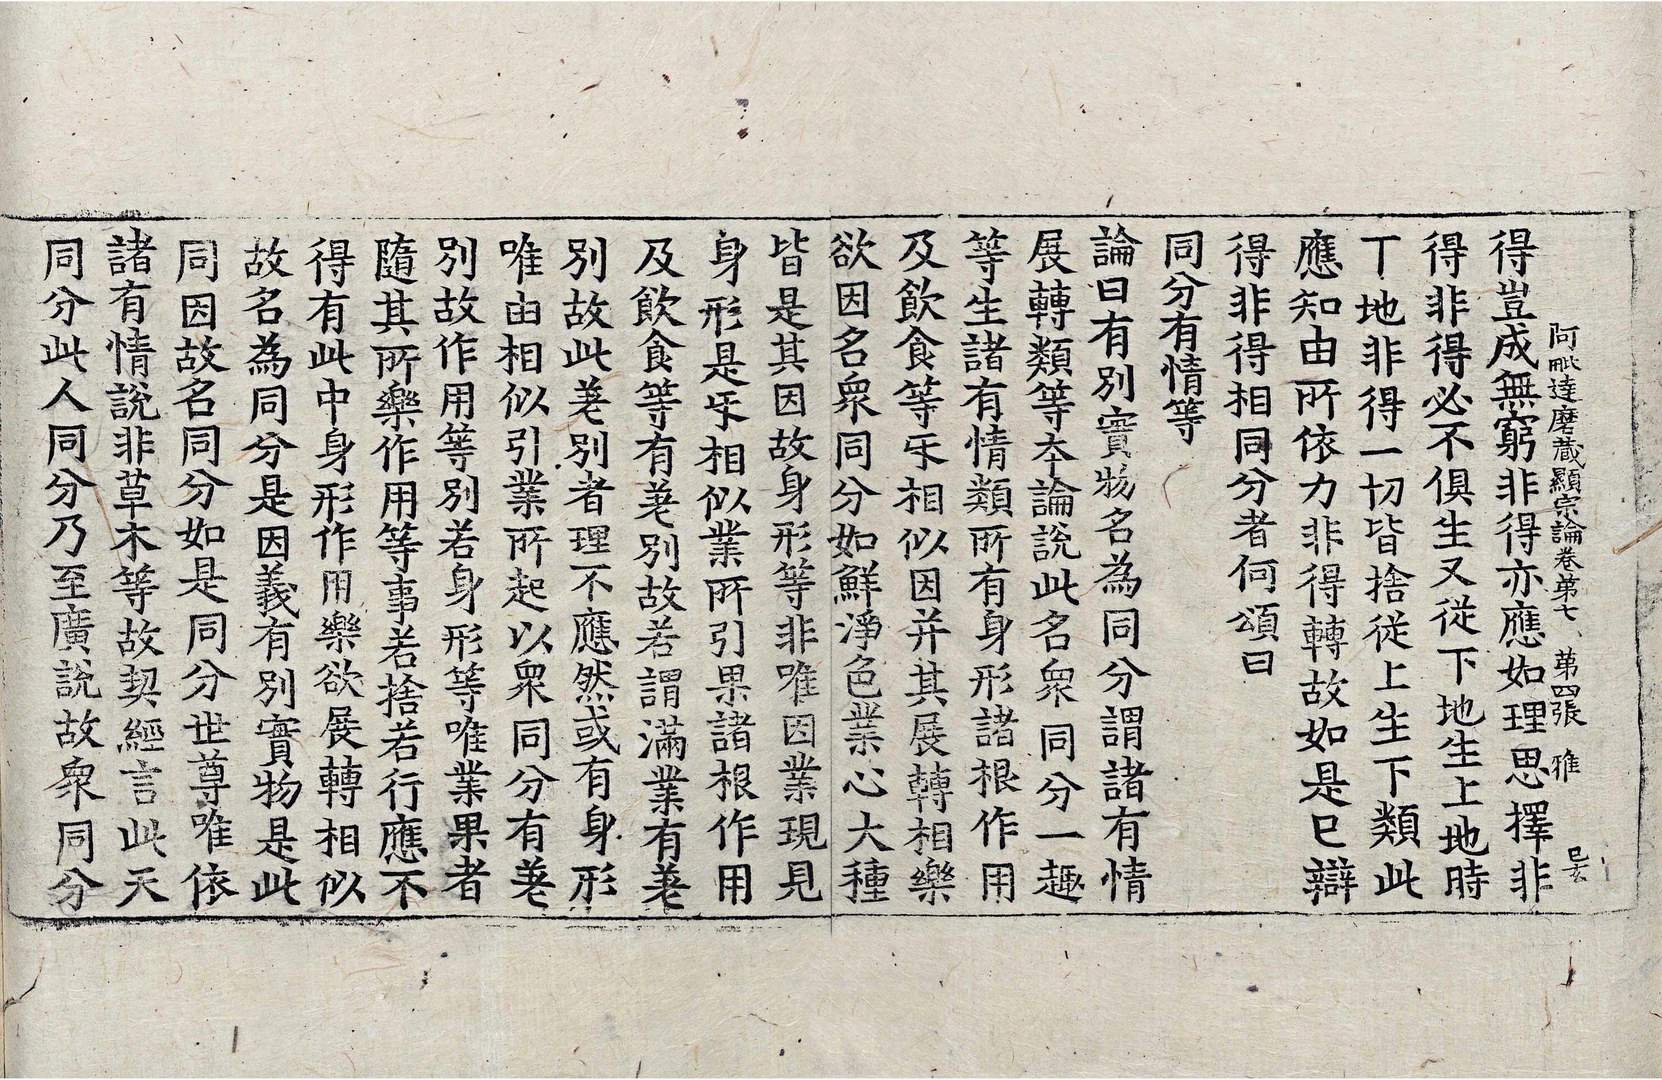 阿毗達磨藏顯宗論卷第七 第四張 雅
得豈成無窮非得亦應如理思擇非
得非得必不俱生又從下地生上地時
丁地非得一切皆捨從上生下類此
應知由所依力非得轉故如是已辯
得非得相同分者何頌曰
同分有情等
論曰有別實物名為同分謂諸有情
展轉類等本論說此名衆同分一趣
等生諸有情類所有身形諸根作用
及飲食等㸦相似因并其展轉相樂
欲因名衆同分如鮮淨色業心大種
皆是其因故身形等非唯因業現見
身形是㸦相似業所引果諸根作用
及飲食等有差別故若謂滿業有差
別故此差別者理不應然或有身形
唯由相似引業所起以衆同分有差
別故作用等別若身形等唯業果者
隨其所樂作用等事若捨若行應不
得有此中身形作用樂欲展轉相似
故名為同分是因義有別實物是此
同因故名同分如是同分世尊唯依
諸有情說非草木等故契經言此天
同分此人同分乃至廣說故衆同分